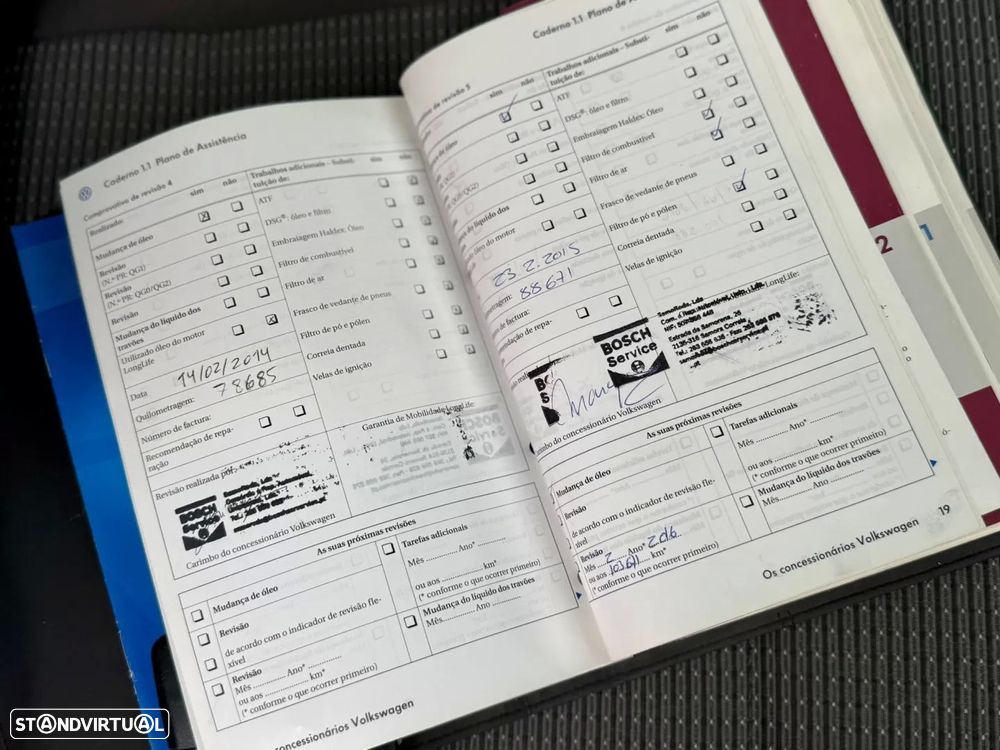 Caderno 1.1 Plano de Assistência
Comprovativo de revisão 4
sim não
Realizado:
Mudança de óleo
Revisão
(N.º PR: QG1)
Revisão
(N.º PR: QG0/QG2)
Revisão
Mudança do líquido dos
travões
Utilizado óleo do motor
LongLife
Data 14/02/2014
Quilometragem: 78685
Número de factura:
Recomendação de repa-
ração
Revisão realizada por:
BOSCH
Service
Carimbo do concessionário Volkswagen
Trabalhos adicionais - Substi- sim não
tuição de:
ATF
DSG®: óleo e filtro
Embraiagem Haldex: Óleo
Filtro de combustível
Filtro de ar
Frasco de vedante de pneus
Filtro de pó e pólen
Correia dentada
Velas de ignição
Garantia de Mobilidade LongLife:
As suas próximas revisões
Mudança de óleo
Revisão
de acordo com o indicador de revisão fle-
xível
Revisão
Mês .............. Ano* ..............
ou aos .............. km*
(* conforme o que ocorrer primeiro)
Tarefas adicionais
Mês .............. Ano* ..............
ou aos .............. km*
(* conforme o que ocorrer primeiro)
Mudança do líquido dos travões
Mês.............. Ano ..............
concessionários Volkswagen
Caderno 1.1 Plano de
de revisão 5
sim não
de óleo
QG0/QG2)
do líquido dos
óleo do motor
23.2.2015
88671
de factura:
de repa-
BOSCH
Service
Samorense, 26
2135-316 Samora Correia
Carimbo do concessionário Volkswagen
Trabalhos adicionais - Substi- sim não
tuição de:
ATF
DSG®: óleo e filtro
Embraiagem Haldex: Óleo
Filtro de combustível
Filtro de ar
Frasco de vedante de pneus
Filtro de pó e pólen
Correia dentada
Velas de ignição
LongLife:
As suas próximas revisões
Mudança de óleo
Revisão
de acordo com o indicador de revisão fle-
xível
Revisão
Mês 2 Ano* 2016
ou aos 103671 km*
(* conforme o que ocorrer primeiro)
Tarefas adicionais
Mês .............. Ano* ..............
ou aos .............. km*
(* conforme o que ocorrer primeiro)
Mudança do líquido dos travões
Mês.............. Ano ..............
Os concessionários Volkswagen 19
2 1
STANDVIRTUAL